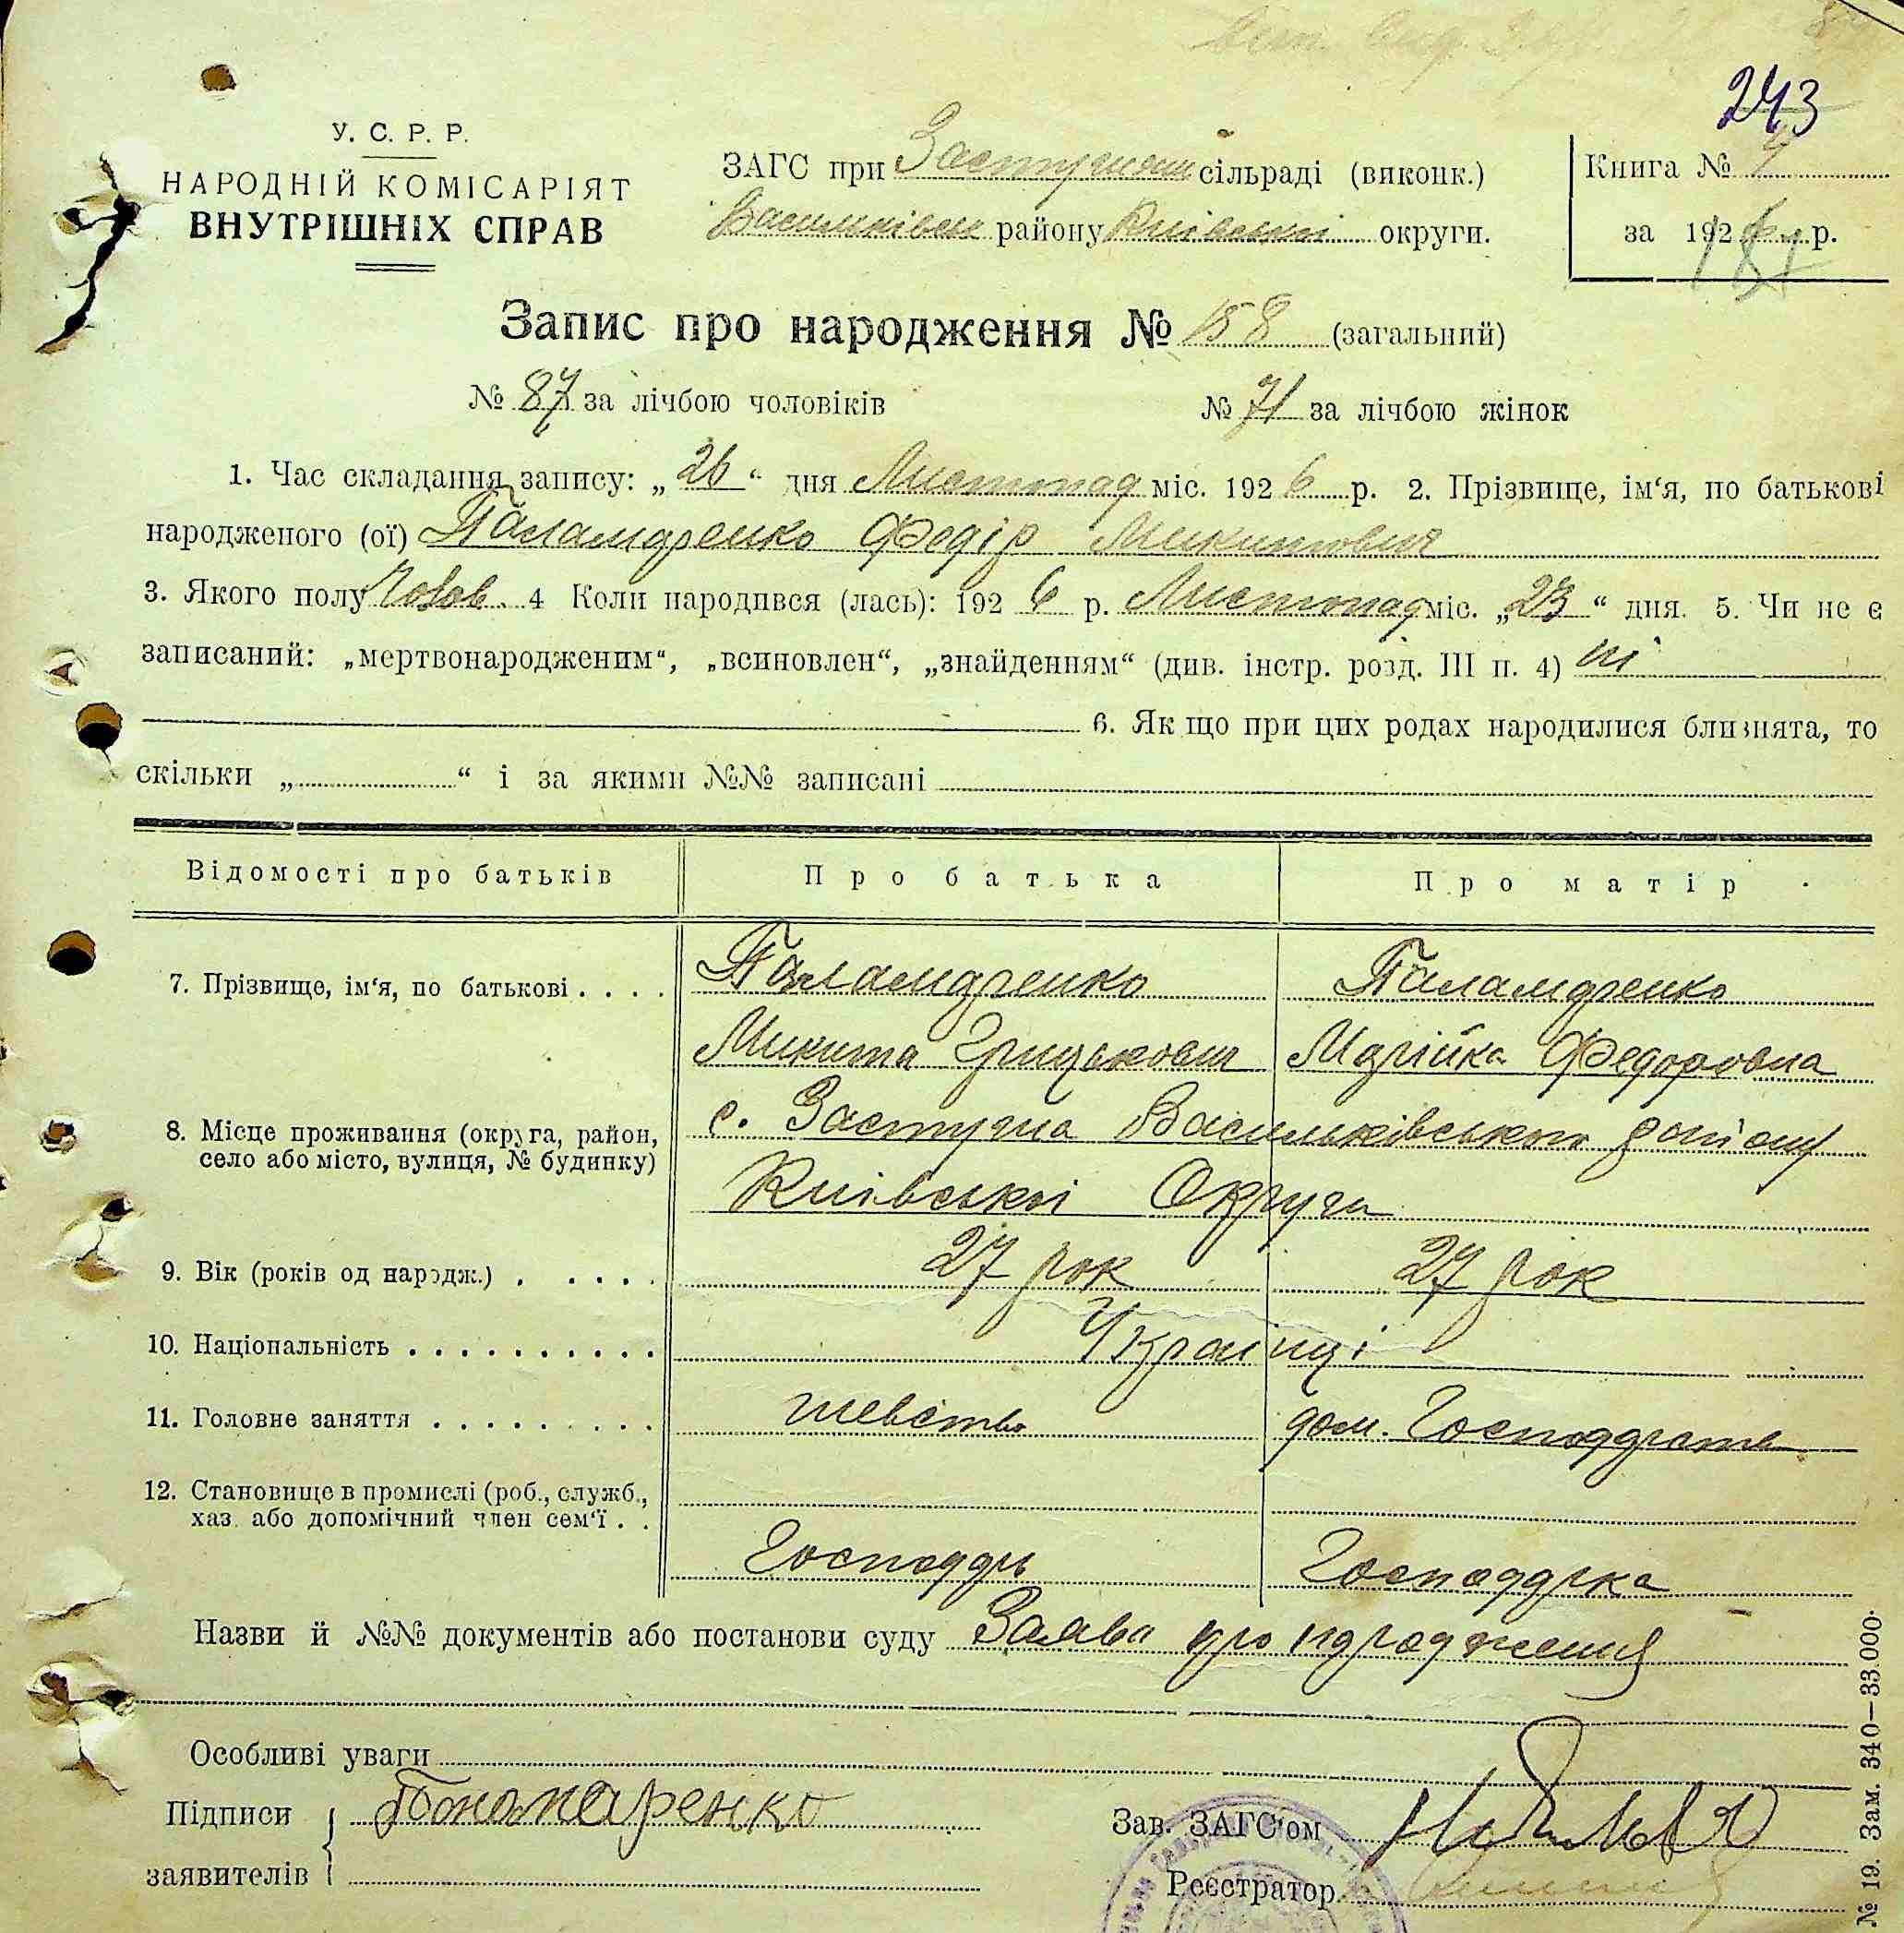 243
У. С. Р. Р.
НАРОДНІЙ КОМІСАРІЯТ
ВНУТРІШНІХ СПРАВ
ЗАГС при сільраді (виконк.)
району Київської округи.
Книга №
за 1926 р.
Запис про народження № 158 (загальний)
№ 87 за лічбою чоловіків № 71 за лічбою жінок
1. Час складання запису: „26“ дня Листопад міс. 1926 р. 2. Прізвище, ім‘я, по батькові
народженого (ої) Паламаренко Федір Микитович
3. Якого полу Чолов. 4 Коли народився (лась): 1926 р. Листопад міс. „23“ дня. 5. Чи не є
записаний: „мертвонародженим“, „всиновлен“, „знайденням“ (див. інстр. розд. III п. 4) ні
6. Якщо при цих родах народилися близнята, то
скільки „ “ і за якими №№ записані
Відомості про батьків Про батька Про матір
7. Прізвище, ім‘я, по батькові . . . . Паламаренко Паламаренко
Микита Грицькович Марійка Федоровна
8. Місце проживання (округа, район, с. Застугна Васильківського району
село або місто, вулиця, № будинку)
Київської Округи
9. Вік (років од народж.) . . . . . 27 рок 27 рок
10. Національність . . . . . . . . . . Українці
11. Головне заняття . . . . . . . . . шевство дом. Господарств
12. Становище в промислі (роб., служб.,
хаз. або допомічний член сем‘ї . .
Господарь Господарка
Назви й №№ документів або постанови суду Заява про народження
Особливі уваги
Підписи Пономаренко Зав. ЗАГС‘ом
заявителів Реєстратор
№ 19. Зам. 340—33.000.